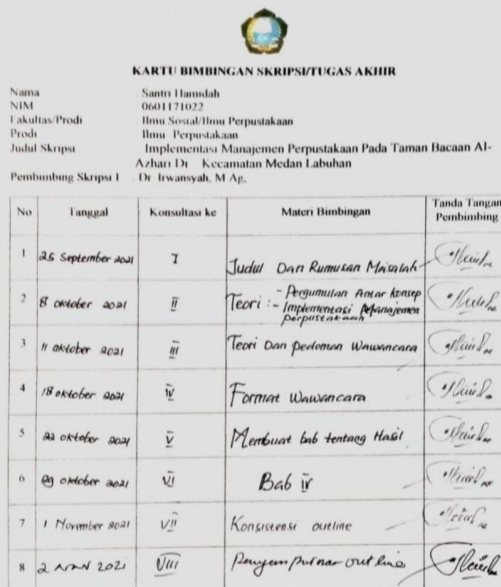 KARTU BIMBINGAN SKRIPSI/TUGAS AKHIR
Nama : Santri Hamidah
NIM : 0601171022
Fakultas/Prodi : Ilmu Sosial/Ilmu Perpustakaan
Prodi : Ilmu Perpustakaan
Judul Skripsi : Implementasi Manajemen Perpustakaan Pada Taman Bacaan Al-
Azhari Di Kecamatan Medan Labuhan
Pembimbing Skripsi I : Dr. Irwansyah, M Ag,
No Tanggal Konsultasi ke Materi Bimbingan Tanda Tangan
Pembimbing
1 25 September 2021 I Judul Dan Rumusan Masalah
2 8 oktober 2021 II Teori : - Pergumulan Antar konsep
- Implementasi Manajemen
perpustakaan
3 11 oktober 2021 III Teori Dan pedoman Wawancara
4 18 oktober 2021 IV Format Wawancara
5 22 oktober 2021 V Membuat bab tentang Hasil
6 29 oktober 2021 VI Bab IV
7 1 November 2021 VII Konsistensi outline
8 2 2021 VIII Penyempurnaan outline